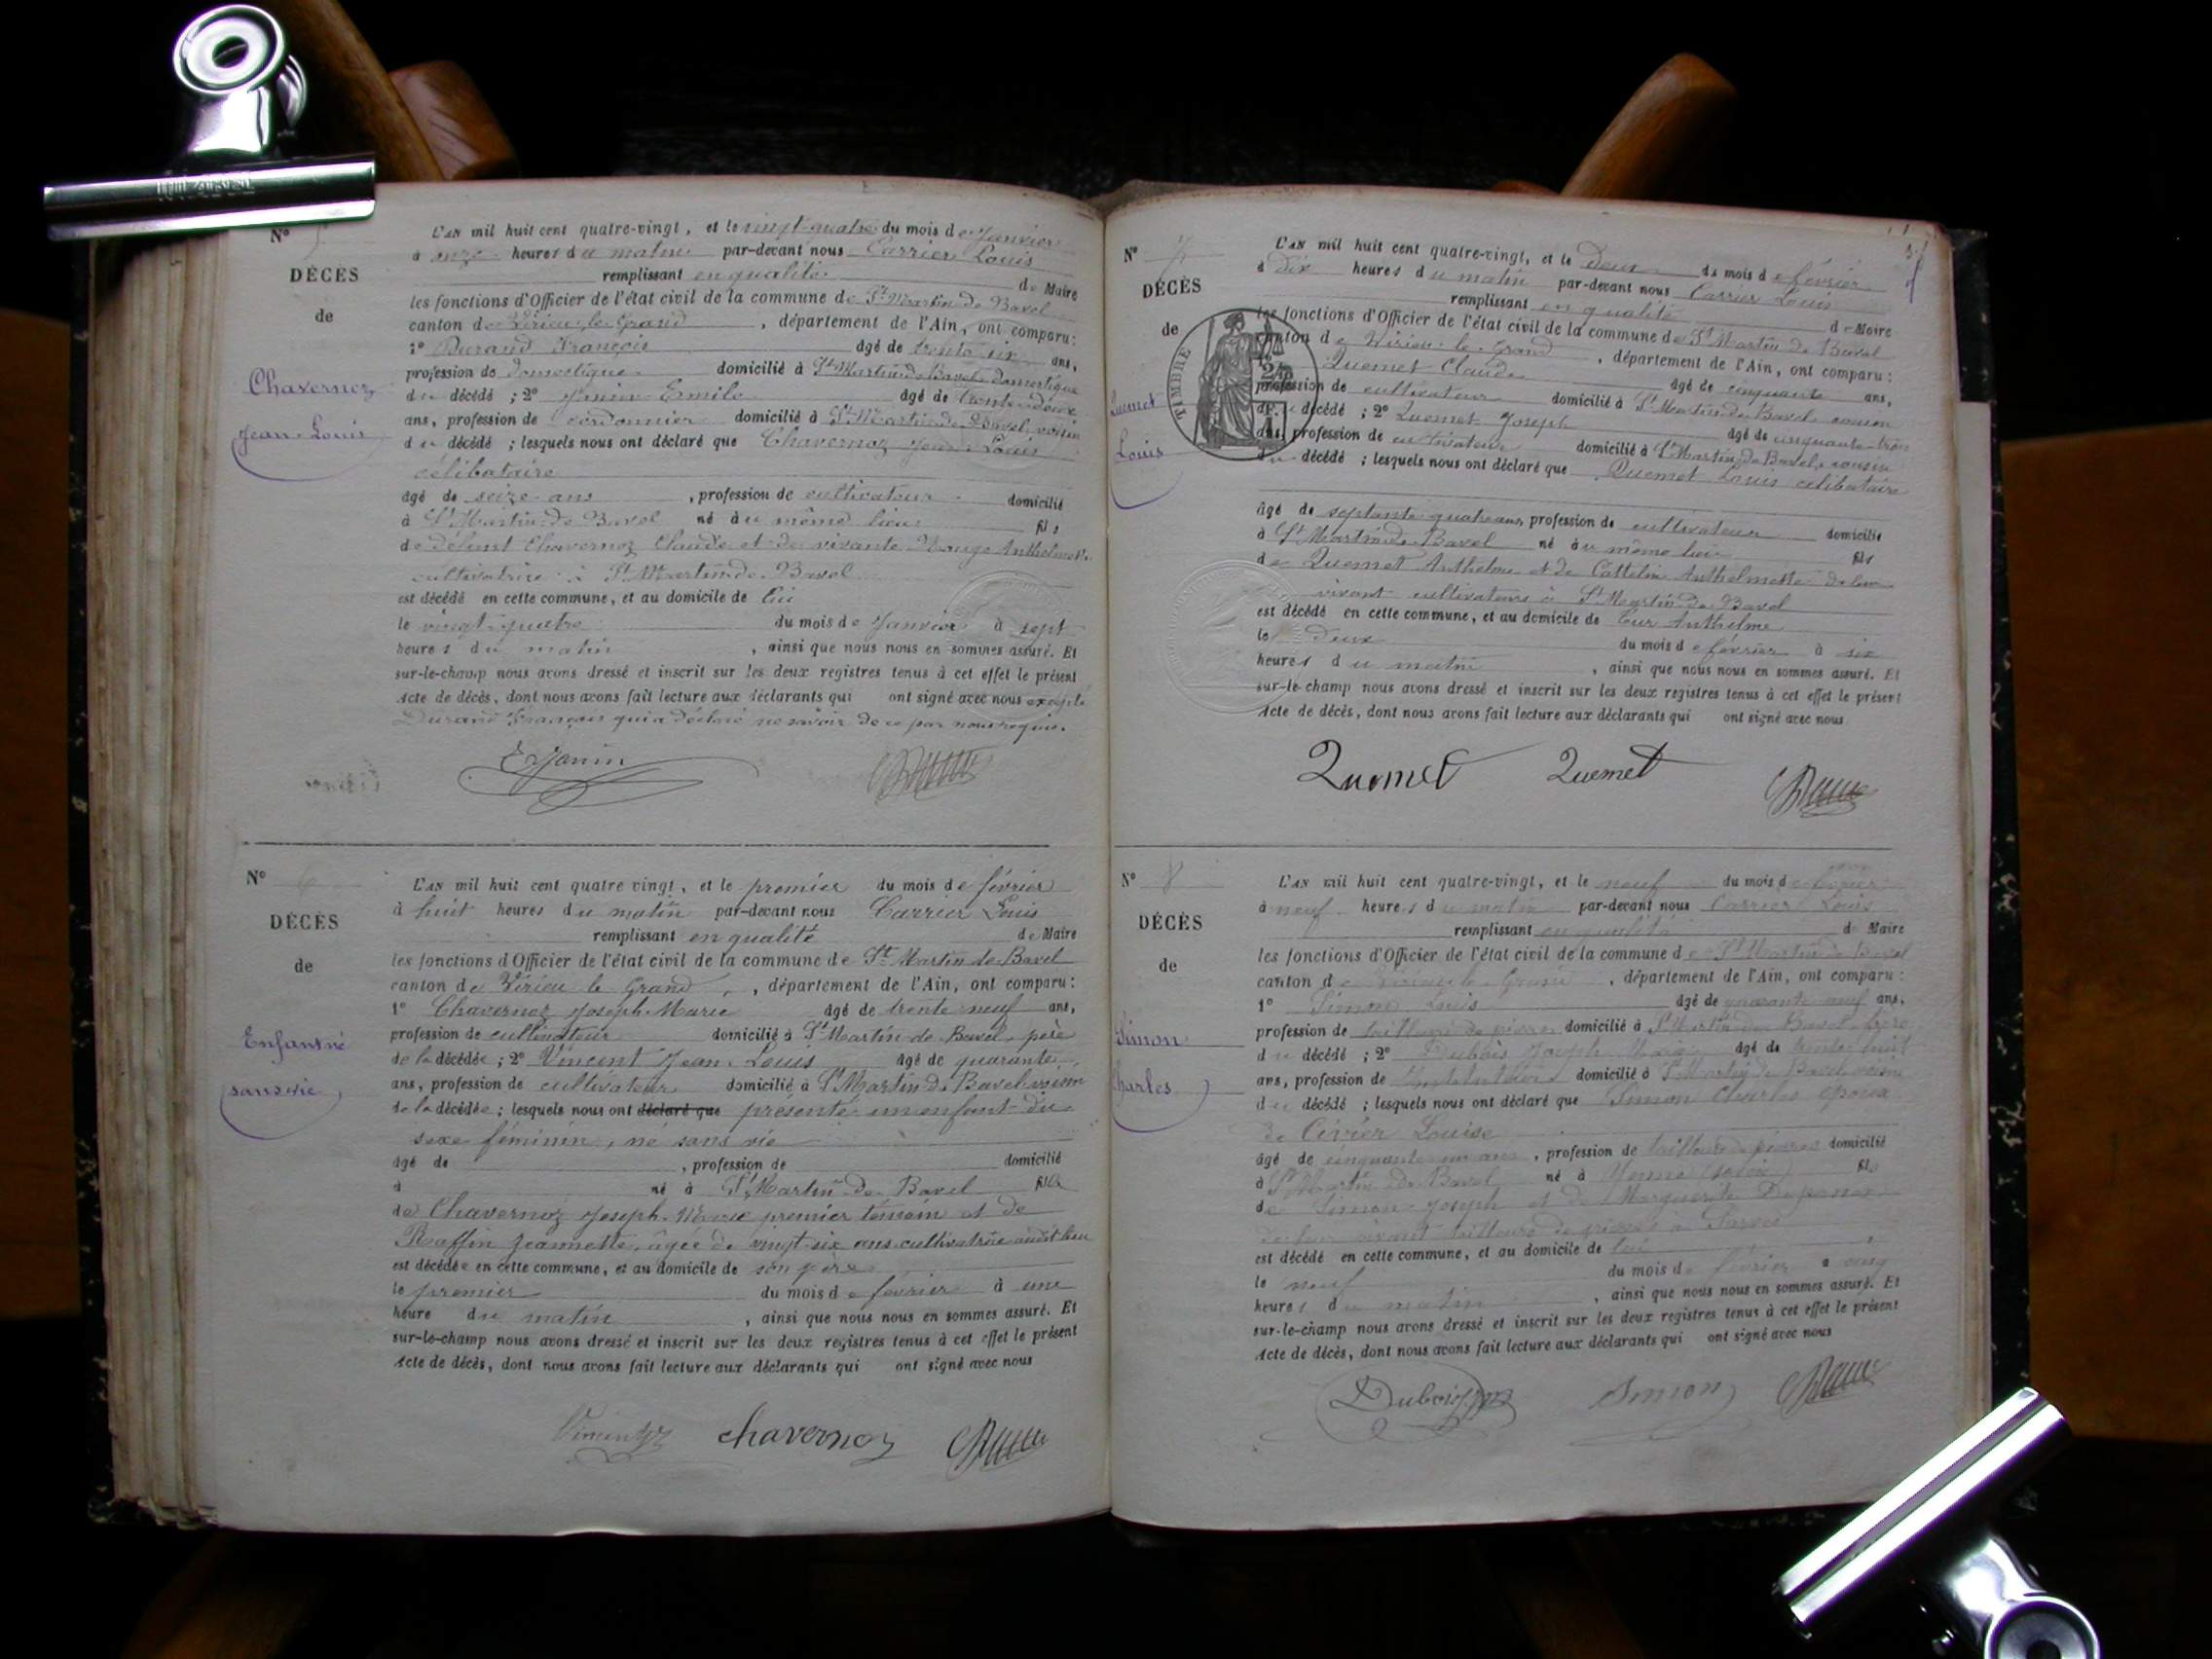 N° 5
DÉCÈS
de
Chavernoz
Jean-Louis
L'an mil huit cent quatre-vingt, et le vingt-quatre du mois de Janvier
à onze heures du matin par-devant nous Carrier Louis
remplissant en qualité de Maire
les fonctions d'Officier de l'état civil de la commune de St Martin de Bavel
canton de Virieu le Grand, département de l'Ain, ont comparu :
1° Durand François âgé de trente six ans,
profession de domestique domicilié à St Martin de Bavel domestique
du décédé ; 2° Janin Emile âgé de trente-deux
ans, profession de cordonnier domicilié à St Martin de Bavel voisin
du décédé ; lesquels nous ont déclaré que Chavernoz Jean Louis
célibataire
âgé de seize ans, profession de cultivateur domicilié
à St Martin de Bavel né au même lieu fils
de défunt Chavernoz Claude et de vivante Anthelmette
cultivatrice à St Martin de Bavel
est décédé en cette commune, et au domicile de lui
le vingt-quatre du mois de Janvier à sept
heures du matin, ainsi que nous nous en sommes assuré. Et
sur-le-champ nous avons dressé et inscrit sur les deux registres tenus à cet effet le présent
Acte de décès, dont nous avons fait lecture aux déclarants qui ont signé avec nous excepté
Durand François qui a déclaré ne savoir de ce par nous requis.
E Janin
N° 6
DÉCÈS
de
Enfant né
sans vie
L'an mil huit cent quatre vingt, et le premier du mois de février
à huit heures du matin par-devant nous Carrier Louis
remplissant en qualité de Maire
les fonctions d'Officier de l'état civil de la commune de St Martin de Bavel
canton de Virieu le Grand, département de l'Ain, ont comparu :
1° Chavernoz Joseph-Marie âgé de trente neuf ans,
profession de cultivateur domicilié à St Martin de Bavel, père
de la décédée ; 2° Vincent Jean Louis âgé de quarante
ans, profession de cultivateur domicilié à St Martin de Bavel voisin
de la décédée ; lesquels nous ont déclaré que présenté un enfant du
sexe féminin, né sans vie
âgé de , profession de domicilié
à né à St Martin de Bavel fille
de Chavernoz Joseph-Marie premier témoin et de
Raffin Jeannette, âgée de vingt-six ans cultivatrice audit lieu
est décédée en cette commune, et au domicile de son père
le premier du mois de février à une
heure du matin, ainsi que nous nous en sommes assuré. Et
sur-le-champ nous avons dressé et inscrit sur les deux registres tenus à cet effet le présent
Acte de décès, dont nous avons fait lecture aux déclarants qui ont signé avec nous
Vincent chavernoz
N° 7
DÉCÈS
de
Quemet
Louis
TIMBRE
L'an mil huit cent quatre-vingt, et le Deux du mois de février
à Dix heures du matin par-devant nous Carrier Louis
remplissant en qualité de Maire
les fonctions d'Officier de l'état civil de la commune de St Martin de Bavel
canton de Virieu le Grand, département de l'Ain, ont comparu :
Quemet Claude âgé de cinquante ans,
profession de cultivateur domicilié à St Martin de Bavel cousin
du décédé ; 2° Quemet Joseph âgé de cinquante-trois
ans, profession de cultivateur domicilié à St Martin de Bavel, cousin
du décédé ; lesquels nous ont déclaré que Quemet Louis célibataire
âgé de septante quatre ans, profession de cultivateur domicilié
à St Martin de Bavel né au même lieu fils
de Quemet Anthelme et de Cattelin Anthelmette de leur
vivant cultivateurs à St Martin de Bavel
est décédé en cette commune, et au domicile de Cur Anthelme
le Deux du mois de février à six
heures du matin, ainsi que nous nous en sommes assuré. Et
sur-le-champ nous avons dressé et inscrit sur les deux registres tenus à cet effet le présent
Acte de décès, dont nous avons fait lecture aux déclarants qui ont signé avec nous
Quemet Quemet
N° 8
DÉCÈS
de
Simon
Charles
L'an mil huit cent quatre-vingt, et le neuf du mois de février
à neuf heures du matin par-devant nous Carrier Louis
remplissant en qualité de Maire
les fonctions d'Officier de l'état civil de la commune de St Martin de Bavel
canton de Virieu le Grand, département de l'Ain, ont comparu :
1° Simon Louis âgé de quarante neuf ans,
profession de tailleur de pierres domicilié à St Martin de Bavel frère
du décédé ; 2° Dubois Joseph Marie âgé de trente huit
ans, profession de domicilié à St Martin de Bavel voisin
du décédé ; lesquels nous ont déclaré que Simon Charles époux
de Civier Louise
âgé de cinquante un ans, profession de tailleur de pierres domicilié
à St Martin de Bavel né à Yenne (Savoie) fils
de Simon Joseph et de Marguerite
de leur vivant tailleurs de pierres à Parves
est décédé en cette commune, et au domicile de lui
le neuf du mois de février à cinq
heures du matin, ainsi que nous nous en sommes assuré. Et
sur-le-champ nous avons dressé et inscrit sur les deux registres tenus à cet effet le présent
Acte de décès, dont nous avons fait lecture aux déclarants qui ont signé avec nous
Dubois Simon